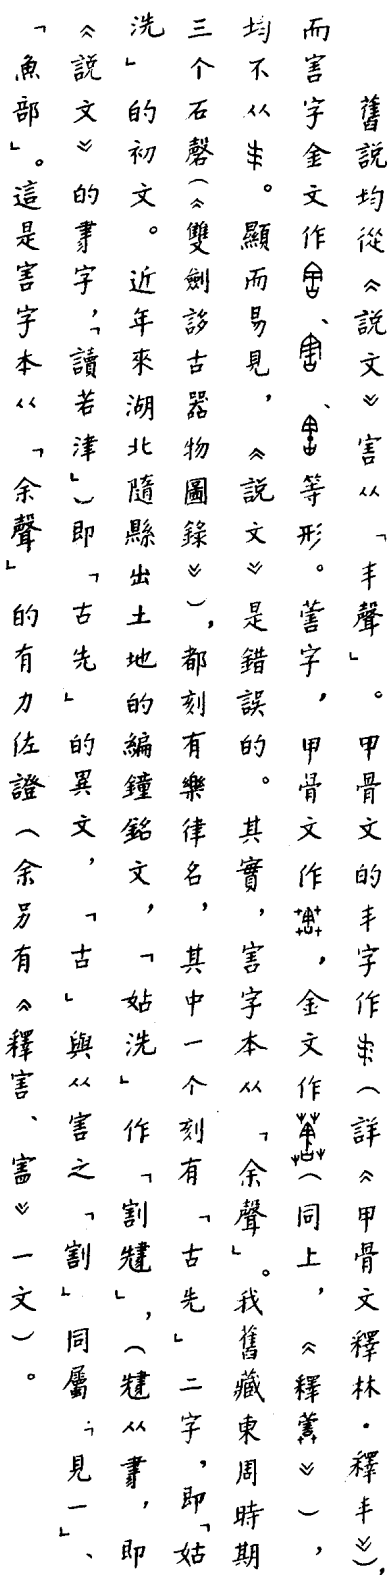 舊說均從《說文》害从「丯聲」。甲骨文的丯字作(詳《甲骨文釋林·釋丯》),
而害字金文作、、等形。字,甲骨文作,金文作(同上,《釋》),
均不从。顯而易見,《說文》是錯誤的。其實,害字本从「余聲」。我舊藏東周時期
三个石磬(《雙劍誃古器物圖錄》),都刻有樂律名,其中一个刻有「古先」二字,即「姑
洗」的初文。近年來湖北隨縣出土地的編鐘銘文,「姑洗」作「割」,(从,即
《說文》的字,「讀若津」)即「古先」的異文,「古」與从害之「割」同屬「見一」、
「魚部」。這是害字本从「余聲」的有力佐證(余另有《釋害、》一文)。